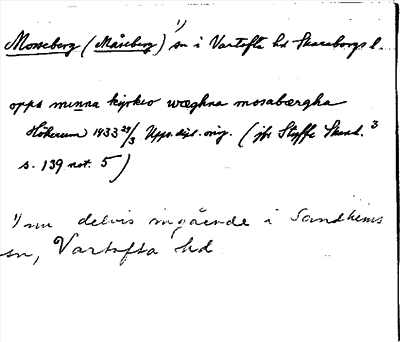 1)
Mosseberg (Måseberg) sn i Vartofta hd Skaraborgs l.
oppa minna kyrkio wæghna mosabærgha
Hökerum 1433 29/3 Upps. dipl. orig. (jfr Styffe Skand.3
s. 139 not. 5)
1) nu delvis ingående i Sandhems
sn, Vartofta hd